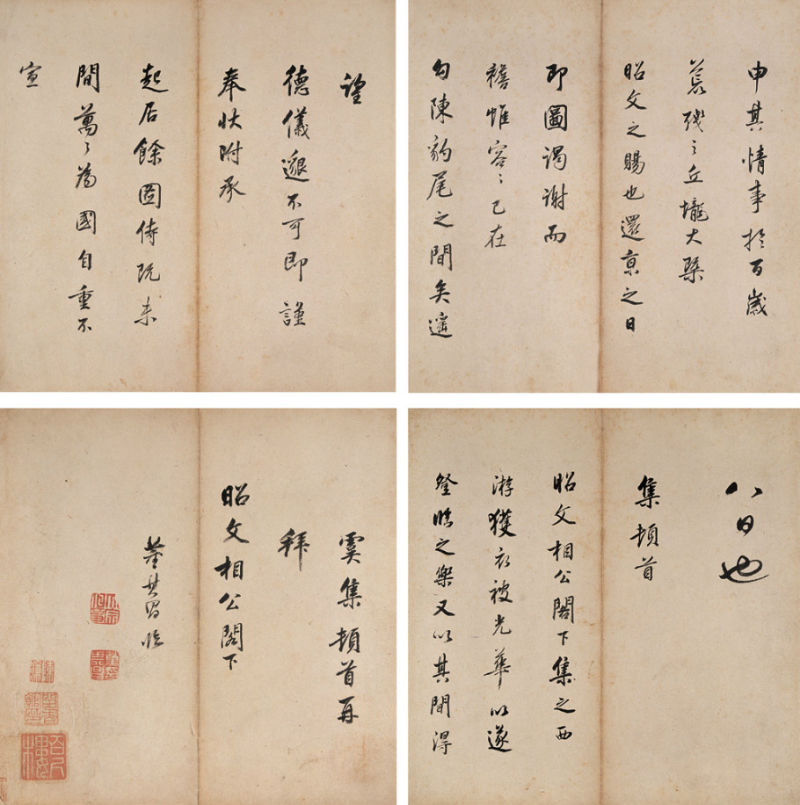 八日也
集頓首
昭文相公閣下集之西
游獲衣被光華以遂
登臨之樂又以其間得
申其情事於百歲
之丘壠大槩
昭文之賜也還京之日
即圖謁謝而
襜帷容々已在
勾陳豹尾之間矣遙
望
德儀邈不可即謹
奉狀附承
起居餘圖侍既未
間萬々為國自重不
宣
虞集頓首再
拜
昭文相公閣下
董其昌臨